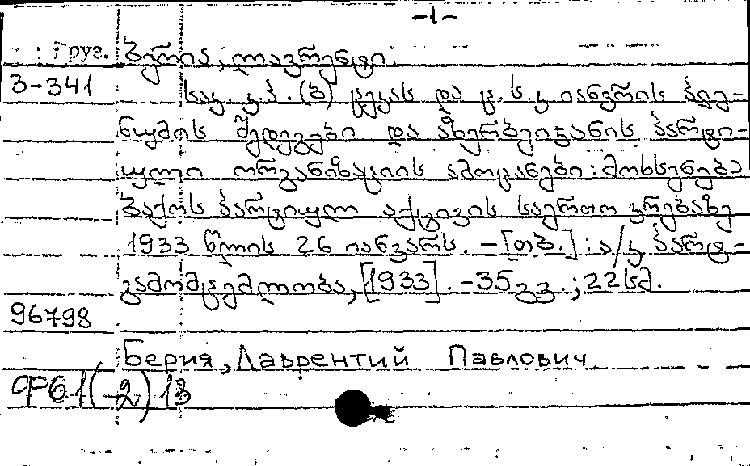 -1-
Груз. ბერია, ლავრენტი.
3-341 საკ. კ.პ. (ბ) ცეკას და ც.ს.კ იანვრის პლე-
ნუმის შედეგები და აზერბეიჯანის პარტი-
ული ორგანიზაციის ამოცანები : მოხსენება
ბაქოს პარტიულ აქტივის საერთო კრებაზე
1933 წლის 26 იანვარს. – [თბ.] : ა/კ პარტ-
გამომცემლობა, [1933]. -35გვ. ; 22სმ.
96798
Берия, Лаврентий Павлович
Ф61(-2)13